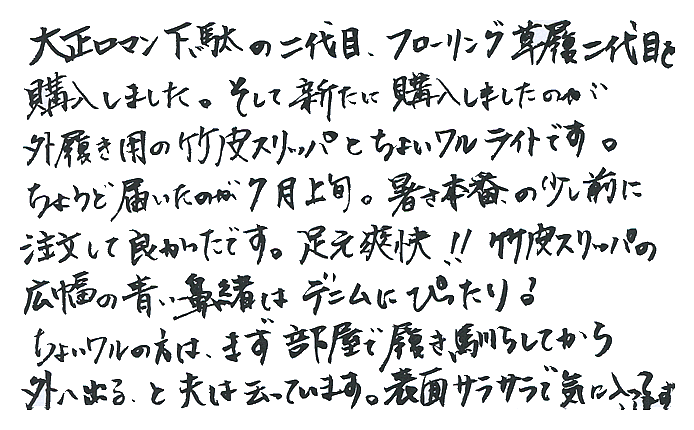 大正ロマン下駄の二代目、フローリング草履二代目を
購入しました。そして新たに購入しましたのが
外履き用の竹皮スリッパとちょいワルライトです。
ちょうど届いたのが7月上旬。暑さ本番の少し前に
注文して良かったです。足元爽快!! 竹皮スリッパの
広幅の青い鼻緒はデニムにぴったり!
ちょいワルの方は、まず部屋で履き馴らしてから
外へ出る、と夫は云っています。表面サラサラで気に入ってます